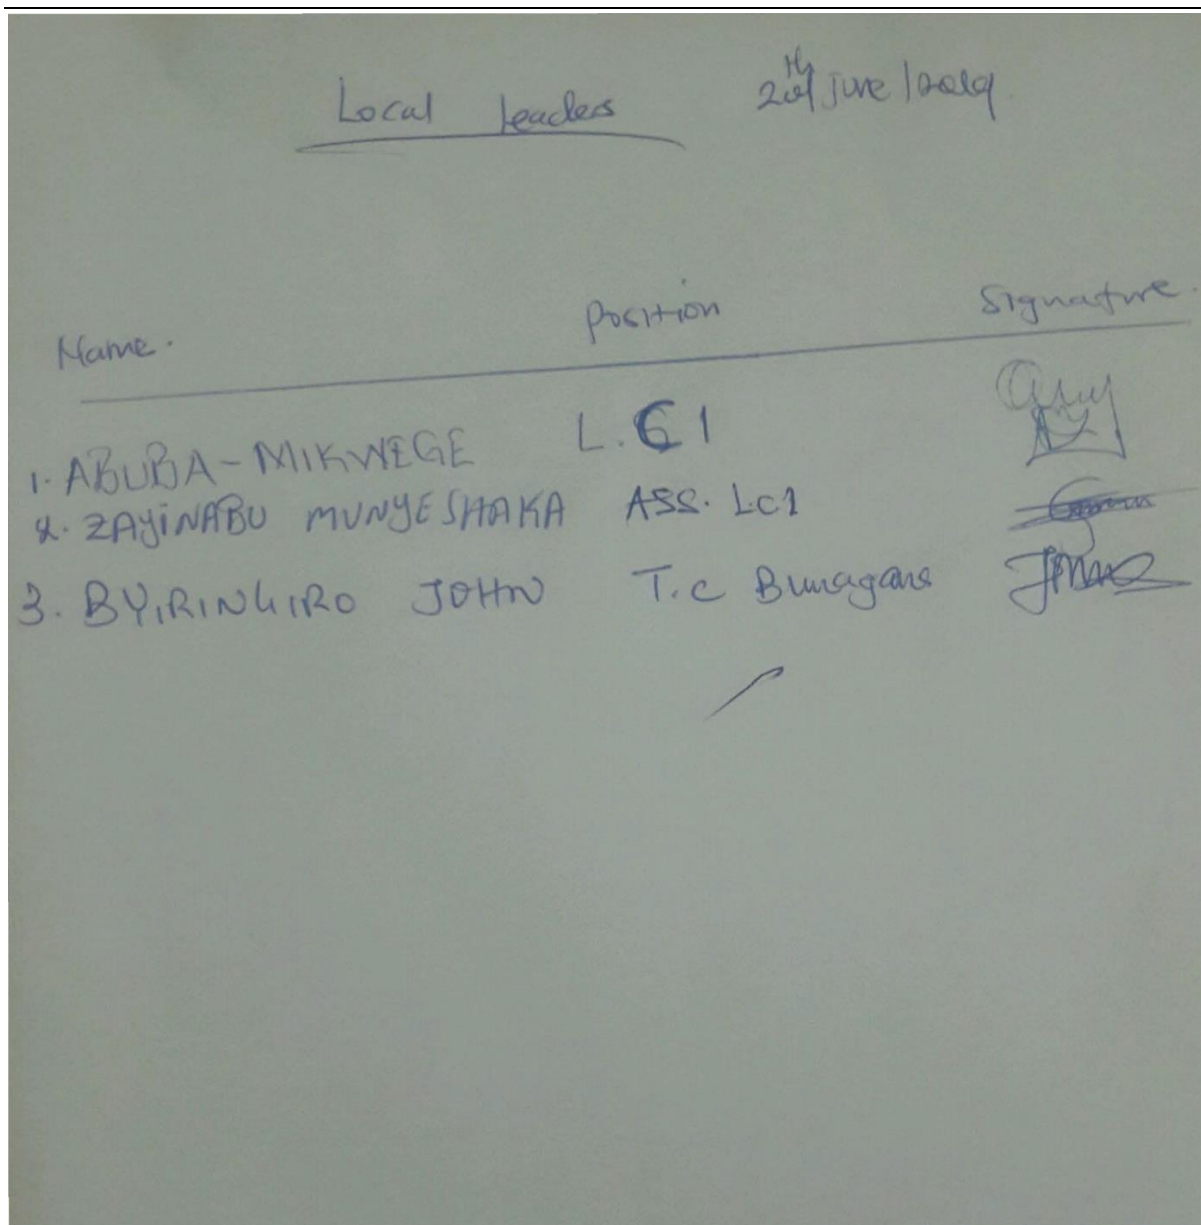 Local leaders June/2019
Name. Position Signature.
1. ABUBA-MIKWEGE L.C1
2. ZAYINABU MUNYESHAKA ASS. LC1
3. BYIRINGIRO JOHN T.C Bunagana